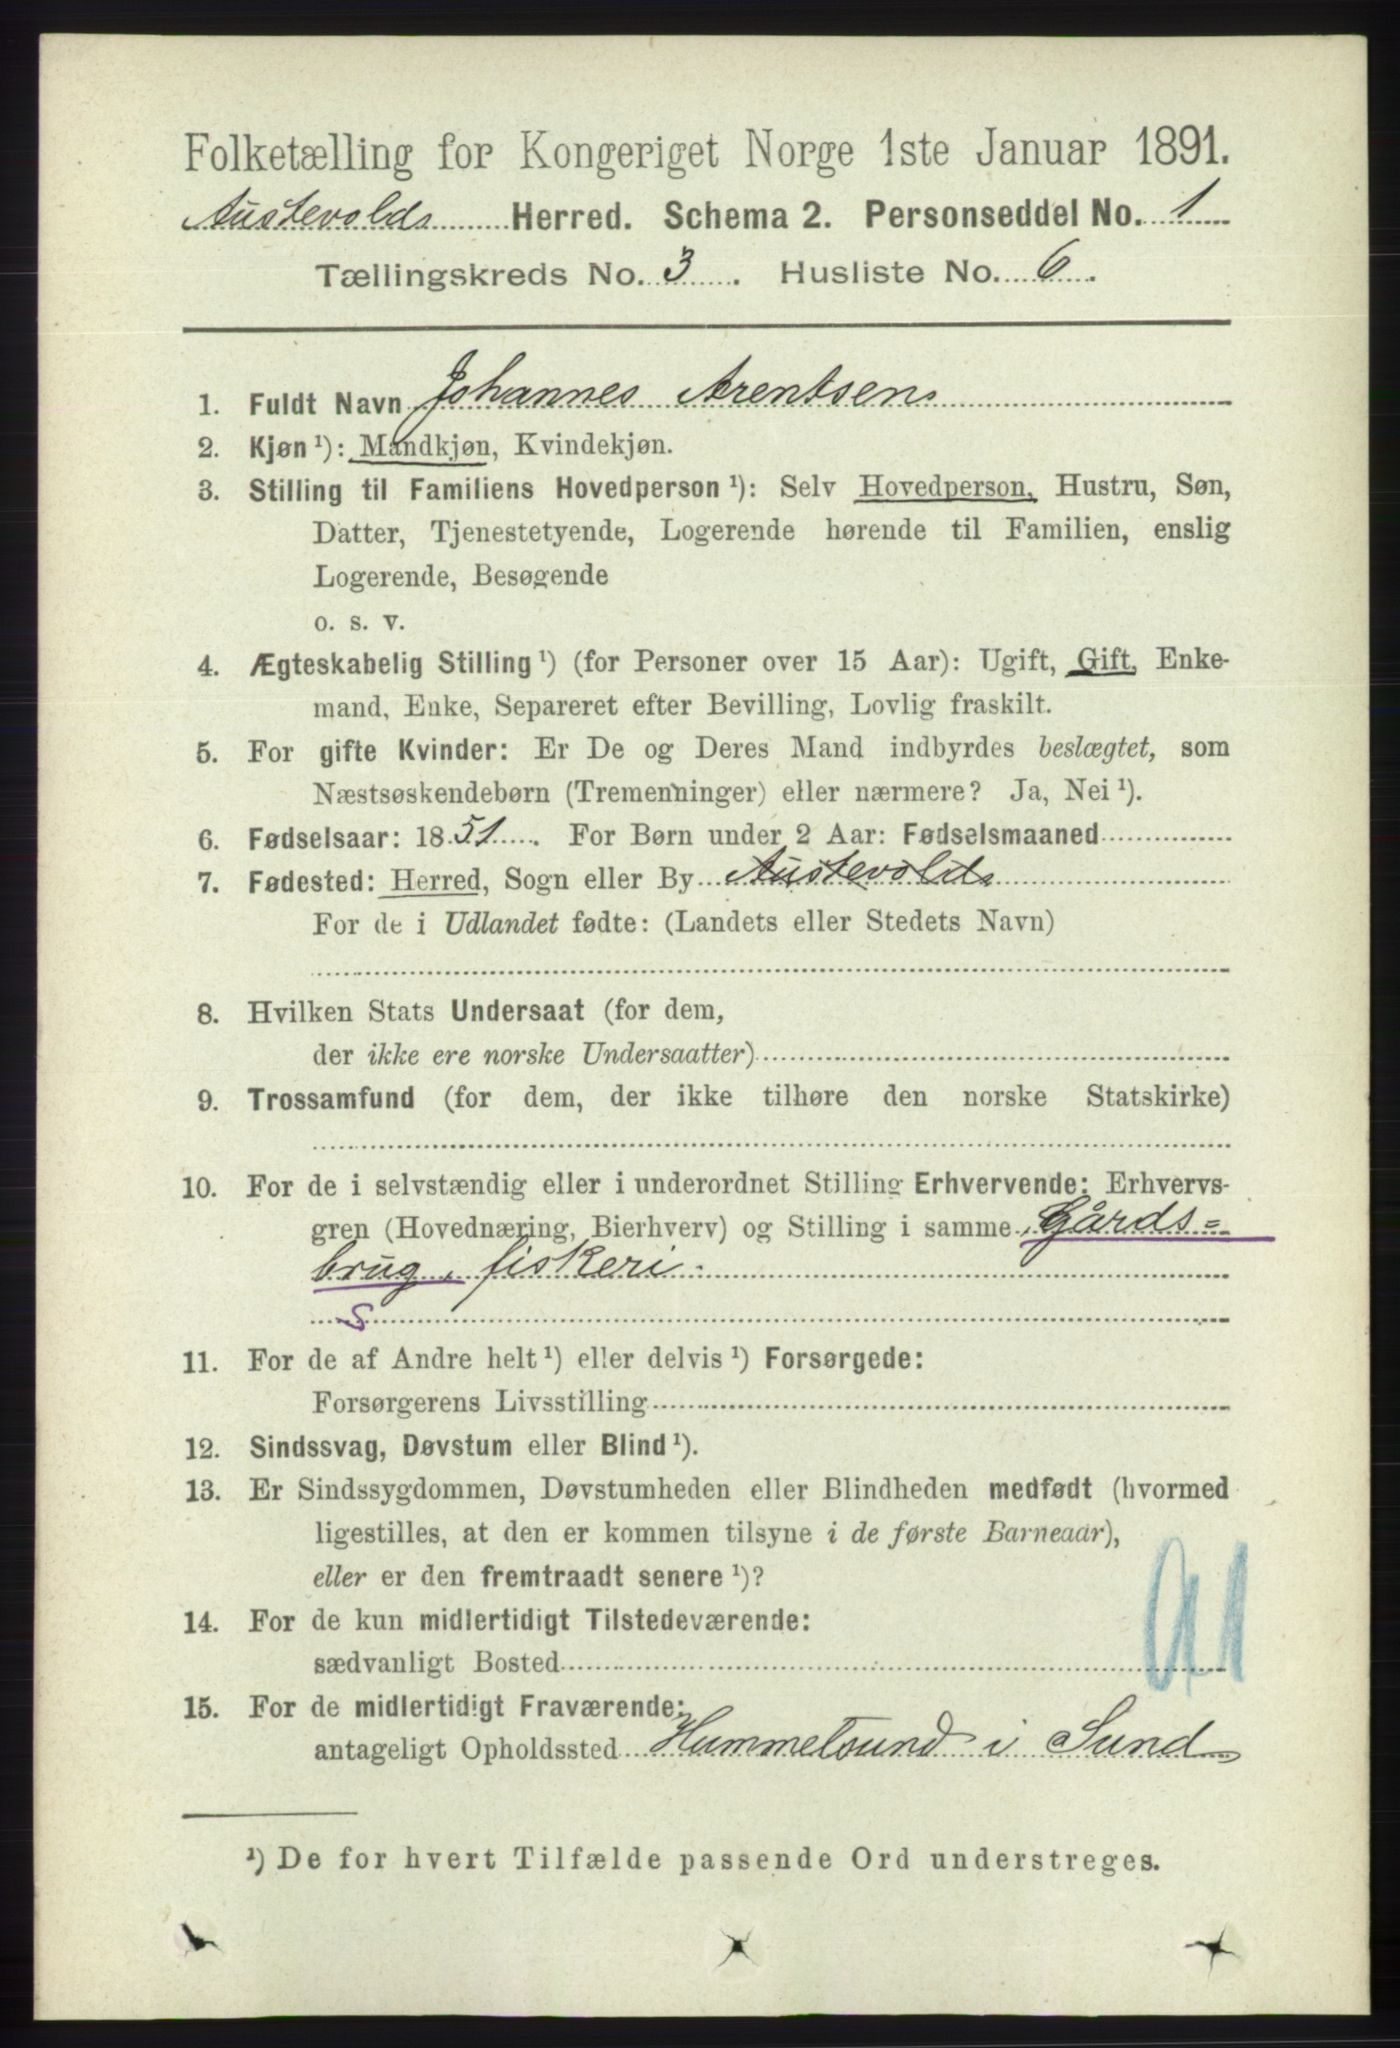 Folketælling for Kongeriget Norge 1ste Januar 1891.
Austevolds Herred. Schema 2. Personseddel No. 1
Tællingskreds No. 3. Husliste No. 6.
1. Fuldt Navn Johannes Arentsen
2. Kjøn ¹): Mandkjøn, Kvindekjøn.
3. Stilling til Familiens Hovedperson ¹): Selv Hovedperson, Hustru, Søn,
Datter, Tjenestetyende, Logerende hørende til Familien, enslig
Logerende, Besøgende
o. s. v.
4. Ægteskabelig Stilling ¹) (for Personer over 15 Aar): Ugift, Gift, Enke-
mand, Enke, Separeret efter Bevilling, Lovlig fraskilt.
5. For gifte Kvinder: Er De og Deres Mand indbyrdes beslægtet, som
Næstsøskendebørn (Tremenninger) eller nærmere? Ja, Nei ¹).
6. Fødselsaar: 1851. For Børn under 2 Aar: Fødselsmaaned
7. Fødested: Herred, Sogn eller By Austevolds
For de i Udlandet fødte: (Landets eller Stedets Navn)
8. Hvilken Stats Undersaat (for dem,
der ikke ere norske Undersaatter)
9. Trossamfund (for dem, der ikke tilhøre den norske Statskirke)
10. For de i selvstændig eller i underordnet Stilling Erhvervende: Erhvervs-
gren (Hovednæring, Bierhverv) og Stilling i samme Gårds=
brug, fiskeri.
S
11. For de af Andre helt ¹) eller delvis ¹) Forsørgede:
Forsørgerens Livsstilling
12. Sindssvag, Døvstum eller Blind ¹).
13. Er Sindssygdommen, Døvstumheden eller Blindheden medfødt (hvormed
ligestilles, at den er kommen tilsyne i de første Barneaar),
eller er den fremtraadt senere ¹)?
14. For de kun midlertidigt Tilstedeværende:
sædvanligt Bosted
15. For de midlertidigt Fraværende:
antageligt Opholdssted Hummelsund i Sund
¹) De for hvert Tilfælde passende Ord understreges.